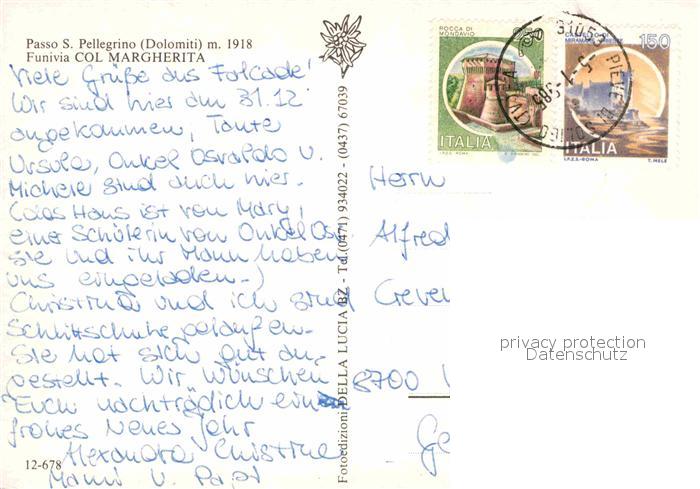 Passo S. Pellegrino (Dolomiti) m. 1918
Funivia COL MARGHERITA
Viele Grüße aus Falcade!
Wir sind hier am 31.12
angekommen, Tante
Ursula, Onkel Osvaldo u.
Michele sind auch hier.
(Das Haus ist von Mary,
einer Schülerin von Onkel Osv.
sie und ihr Mann haben
uns eingeladen.)
Christina und ich sind
Schlittschuhe gelaufen.
Sie hat sich gut an-
gestellt. Wir wünschen
Euch nachträglich ein
frohes Neues Jahr
Alexandra Christina
Mami u. Papi
12-678
Fotoedizioni DELLA LUCIA BZ - Tel. (0471) 934022 - (0437) 67039
ROCCA DI
MONDAVIO
ITALIA
I.P.Z.S. - ROMA
CASTELLO DI
MIRAMARE
150
ITALIA
I.P.Z.S. - ROMA
T. MELE
31053 PIEVE DI SOLIGO
Herrn
Alfred
8700
privacy protection
Datenschutz